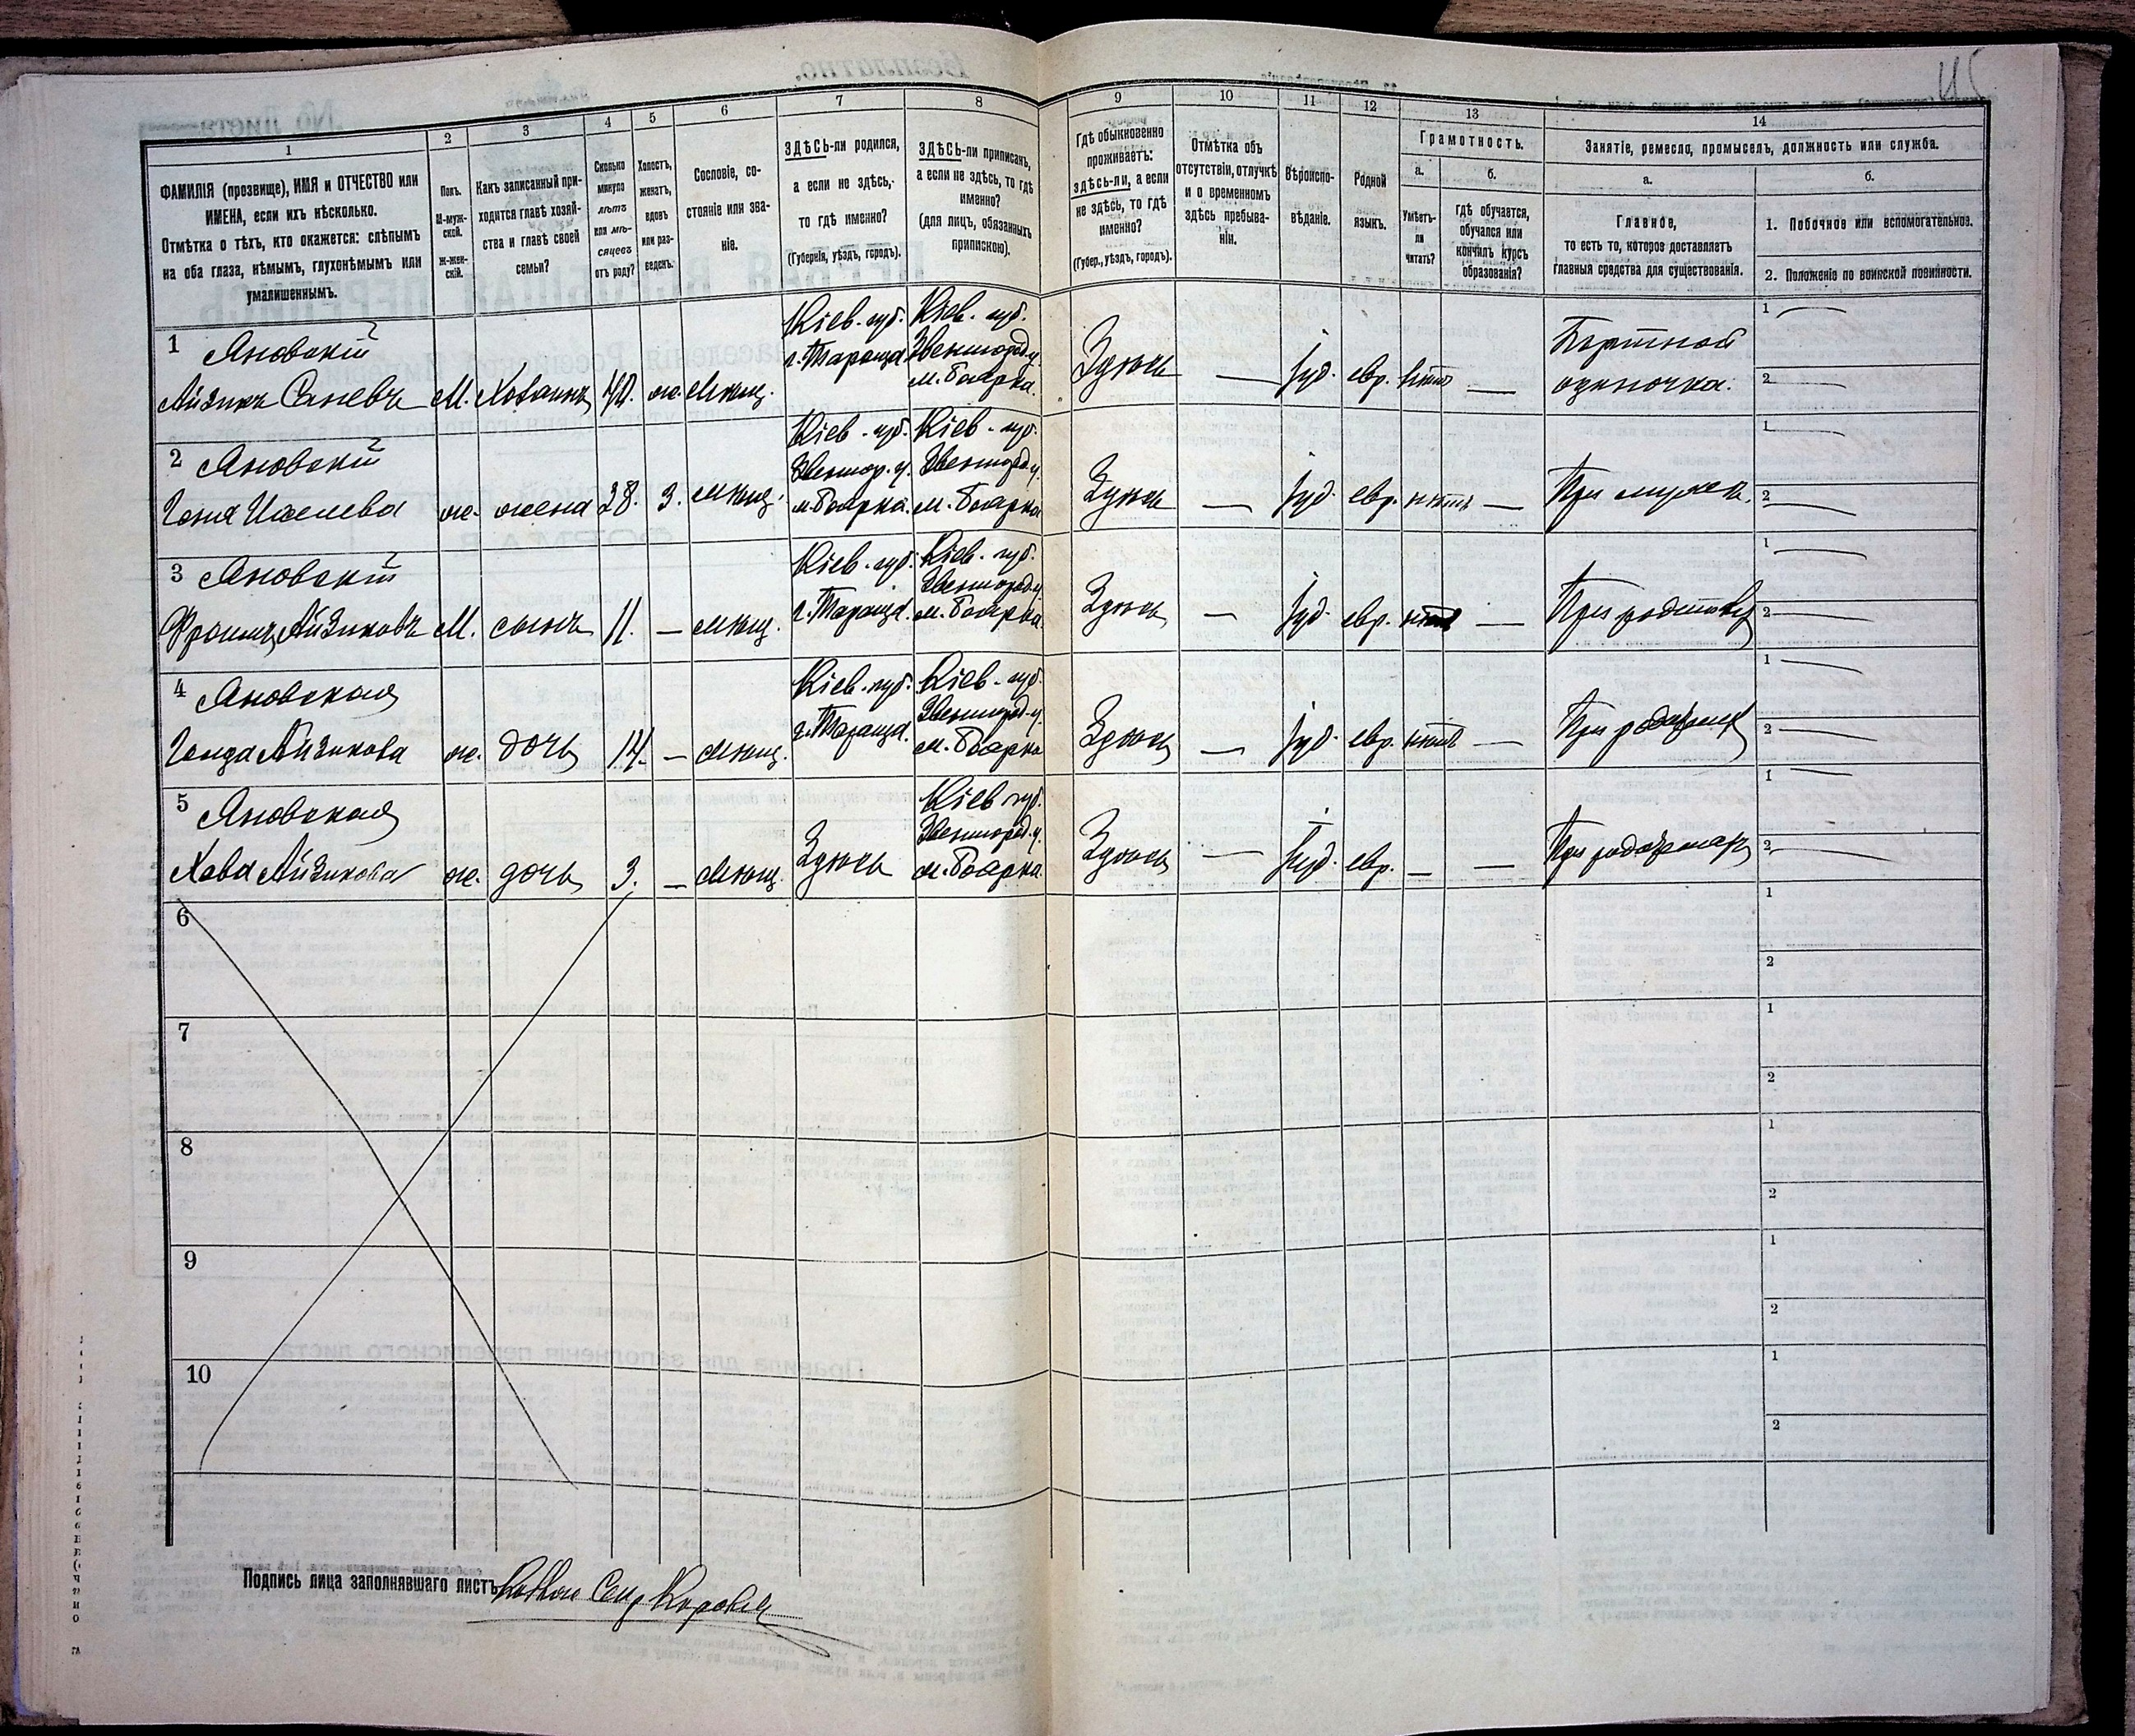 45
1
2
3
4
5
6
7
8
9
10
11
12
13
14
ФАМИЛІЯ (прозвище), ИМЯ и ОТЧЕСТВО или
ИМЕНА, если ихъ нѣсколько.
Отмѣтка о тѣхъ, кто окажется: слѣпымъ
на оба глаза, нѣмымъ, глухонѣмымъ или
умалишеннымъ.
Полъ.
М-муж-
ской.
Ж-жен-
скій.
Какъ записанный при-
ходится главѣ хозяй-
ства и главѣ своей
семьи?
Сколько
минуло
лѣтъ
или мѣ-
сяцевъ
отъ роду?
Холостъ,
женатъ,
вдовъ
или раз-
веденъ.
Сословіе, со-
стояніе или зва-
ніе.
ЗДѢСЬ-ли родился,
а если не здѣсь,-
то гдѣ именно?
(Губернія, уѣздъ, городъ).
ЗДѢСЬ-ли приписанъ,
а если не здѣсь, то гдѣ
именно?
(для лицъ, обязанныхъ
припискою).
Гдѣ обыкновенно
проживаетъ:
здѣсь-ли, а если
не здѣсь, то гдѣ
именно?
(Губер., уѣздъ, городъ).
Отмѣтка объ
отсутствіи, отлучкѣ
и о временномъ
здѣсь пребыва-
ніи.
Вѣроиспо-
вѣданіе.
Родной
языкъ.
Грамотность.
а.
Умѣетъ-
ли
читать?
б.
гдѣ обучается,
обучался или
кончилъ курсъ
образованія?
Занятіе, ремесло, промыселъ, должность или служба.
а.
Главное,
то есть то, которое доставляетъ
главныя средства для существованія.
б.
1. Побочное или вспомогательное.
2. Положеніе по воинской повинности.
1 Яновскій
Айзикъ М. Хозяинъ 40. ж. мѣщ.
Кіев. губ.
г. Тараща
Кіев. губ.
Звенигород. у.
м. Боярка.
Здѣсь — іуд. евр. нѣтъ —
Портной
одиночка.
1 —
2 —
2 Яновскій
ж. жена 28. З. мѣщ.
Кіев. губ.
Звенигор. у.
м. Боярка.
Кіев. губ.
Звенигород. у.
м. Боярка
Здѣсь — іуд. евр. нѣтъ — При мужѣ.
1 —
2 —
3 Яновскій
Айзиковъ М. сынъ 11. — мѣщ.
Кіев. губ.
г. Тараща.
Кіев. губ.
Звенигород. у.
м. Боярка.
Здѣсь — іуд. евр. нѣтъ —
1 —
2 —
4 Яновская
Айзикова ж. дочь — мѣщ.
Кіев. губ.
г. Тараща.
Кіев. губ.
Звенигород. у.
м. Боярка
Здѣсь — іуд. евр. нѣтъ —
1 —
2 —
5 Яновская
Хава Айзикова ж. дочь 3. — мѣщ. Здѣсь
Кіев. губ.
Звенигород. у.
м. Боярка.
Здѣсь — іуд. евр. — —
1 —
2 —
6
1
2
7
1
2
8
1
2
9
1
2
10
1
2
Подпись лица заполнявшаго листъ